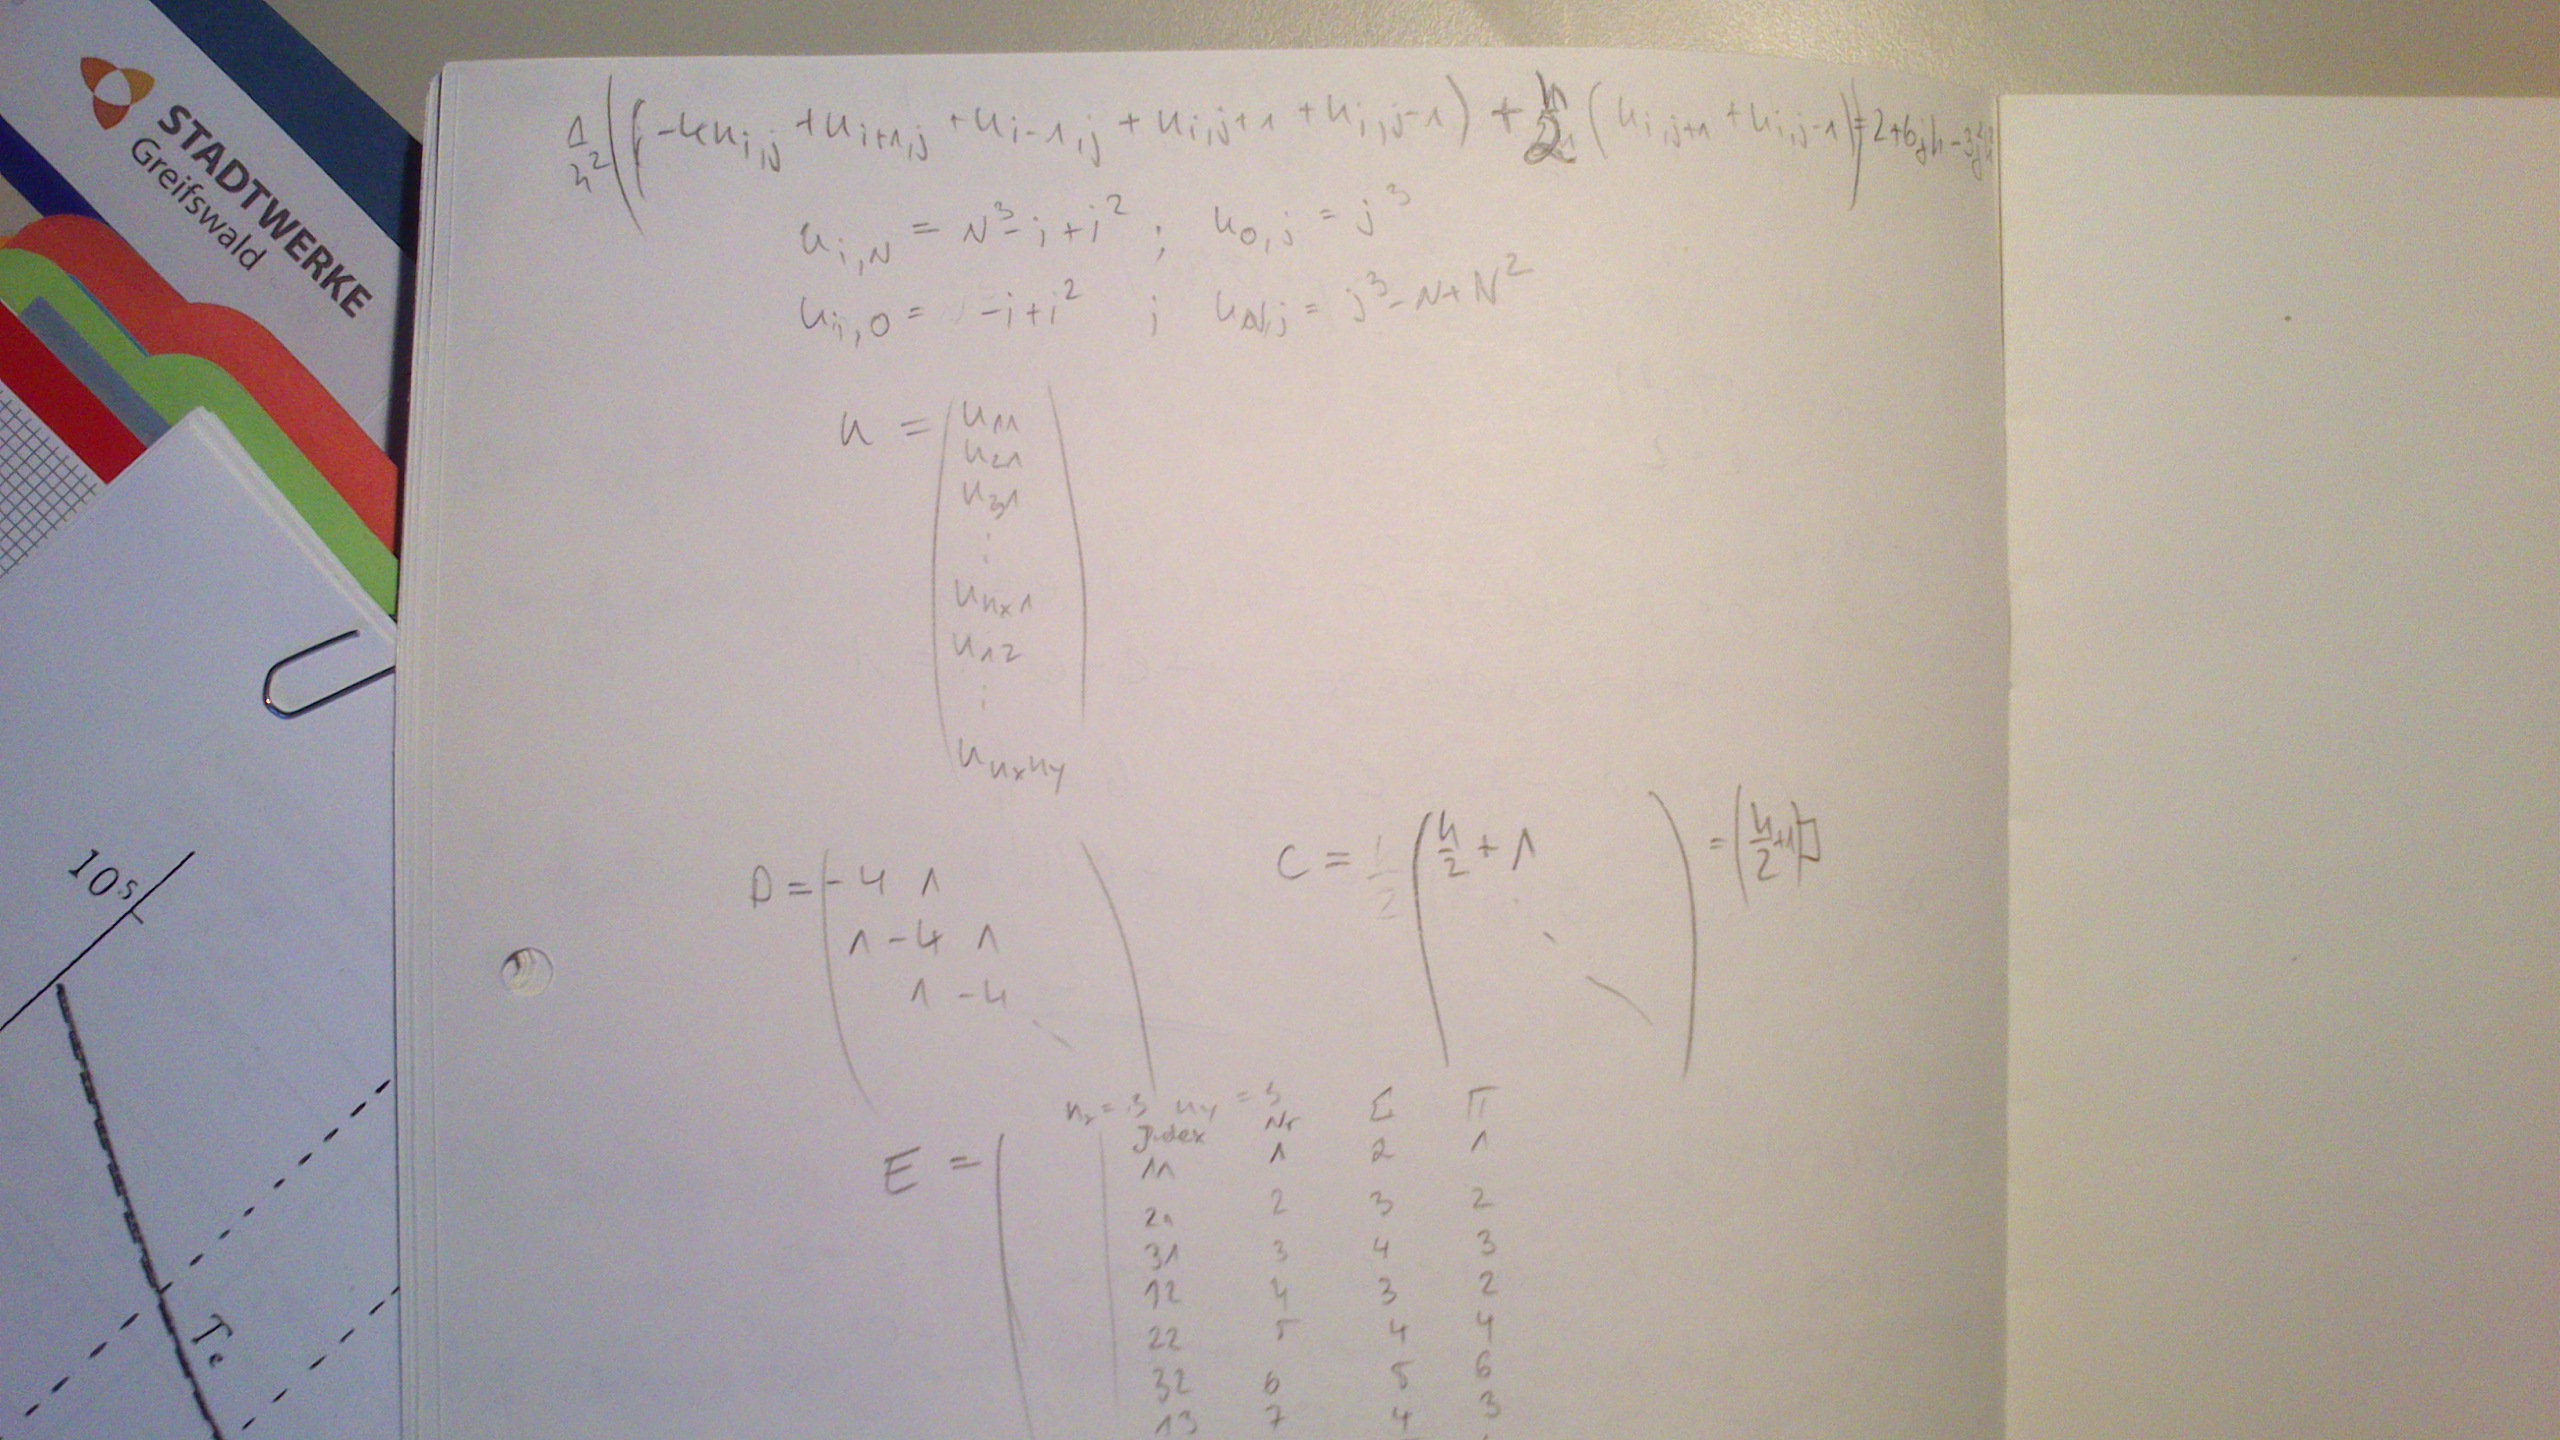 STADTWERKE
Greifswald
1/h² ((-4u_{i,j} + u_{i+1,j} + u_{i-1,j} + u_{i,j+1} + u_{i,j-1}) + h/2 (u_{i,j+1} + u_{i,j-1})) = 2+6jh-3j²h²
u_{i,N} = N³-i+i² ; u_{0,j} = j³
u_{i,0} = -i+i² ; u_{N,j} = j³-N+N²
u = ( u_{11}
u_{21}
u_{31}
⋮
u_{n_x 1}
u_{12}
⋮
u_{n_x n_y} )
D = ( -4 1
1 -4 1
1 -4 )
C = 1/2 ( h/2 + 1 ) = (h/2 +1)
n_x = 3 n_y = 3
E = (
Index Nr Σ Π
11 1 2 1
21 2 3 2
31 3 4 3
12 4 3 2
22 5 4 4
32 6 5 6
13 7 4 3
10⁵
T_e